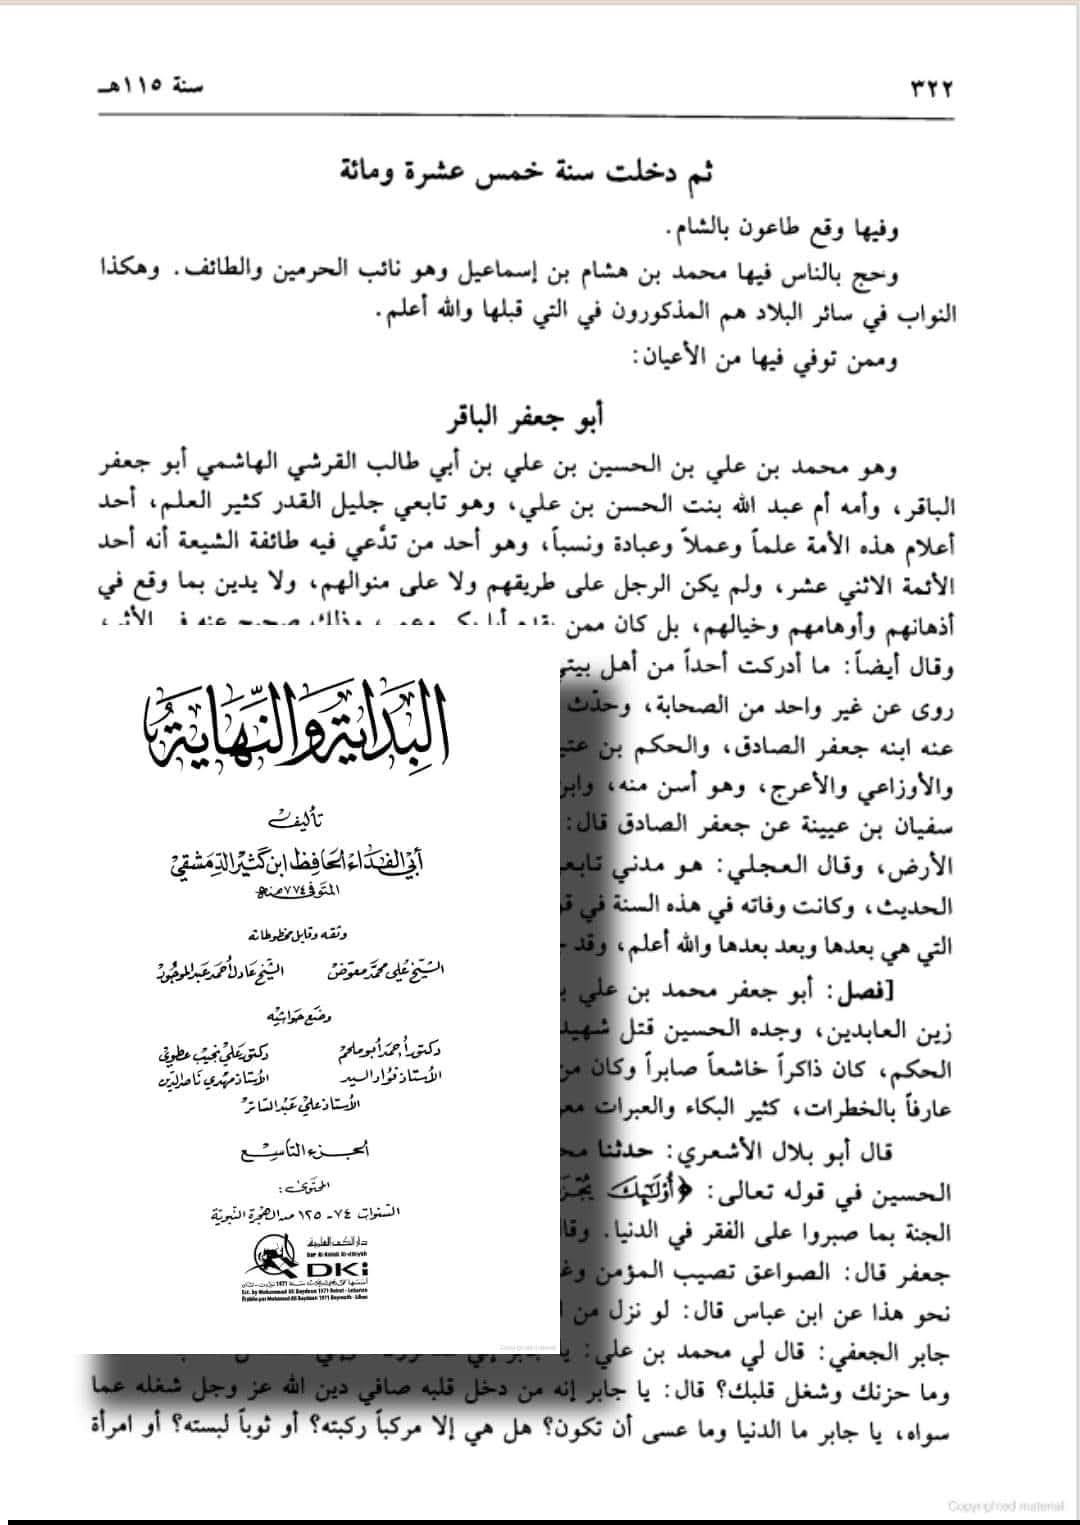 سنة ١١٥هـ
٣٢٢
ثم دخلت سنة خمس عشرة ومائة
وفيها وقع طاعون بالشام.
وحج بالناس فيها محمد بن هشام بن إسماعيل وهو نائب الحرمين والطائف. وهكذا
النواب في سائر البلاد هم المذكورون في التي قبلها والله أعلم.
وممن توفي فيها من الأعيان:
أبو جعفر الباقر
وهو محمد بن علي بن الحسين بن علي بن أبي طالب القرشي الهاشمي أبو جعفر
الباقر، وأمه أم عبد الله بنت الحسن بن علي، وهو تابعي جليل القدر كثير العلم، أحد
أعلام هذه الأمة علماً وعملاً وعبادة ونسباً، وهو أحد من تدَّعي فيه طائفة الشيعة أنه أحد
الأئمة الاثني عشر، ولم يكن الرجل على طريقهم ولا على منوالهم، ولا يدين بما وقع في
أذهانهم وأوهامهم وخيالهم، بل كان ممن يقدم أبا بكر وعمر، وذلك صحيح عنه في الأثر،
وقال أيضاً: ما أدركت أحداً من أهل بيتي
روى عن غير واحد من الصحابة، وحدّث
عنه ابنه جعفر الصادق، والحكم بن
والأوزاعي والأعرج، وهو أسن منه،
سفيان بن عيينة عن جعفر الصادق قال:
الأرض، وقال العجلي: هو مدني
الحديث، وكانت وفاته في هذه السنة في
التي هي بعدها وبعد بعدها والله أعلم، وقد
[فصل: أبو جعفر محمد بن علي
زين العابدين، وجده الحسين قتل
الحكم، كان ذاكراً خاشعاً صابراً وكان
عارفاً بالخطرات، كثير البكاء والعبرات
قال أبو بلال الأشعري: حدثنا
الحسين في قوله تعالى: ﴿أُوْلَٰٓئِكَ
الجنة بما صبروا على الفقر في الدنيا.
جعفر قال: الصواعق تصيب المؤمن
نحو هذا عن ابن عباس قال: لو نزل من
جابر الجعفي: قال لي محمد بن علي:
وما حزنك وشغل قلبك؟ قال: يا جابر إنه من دخل قلبه صافي دين الله عز وجل شغله عما
سواه، يا جابر ما الدنيا وما عسى أن تكون؟ هل هي إلا مركباً ركبته؟ أو ثوباً لبسته؟ أو امرأة
البداية والنهاية
تأليف
أبي الفداء الحافظ ابن كثير الدمشقي
المتوفى ٧٧٤ سنة هـ
وثقه وقابل مخطوطاته
الشيخ علي محمد معوض الشيخ عادل أحمد عبد الموجود
وضع حواشيه
دكتور أحمد أبو ملحم دكتور علي نجيب عطوي
الأستاذ فؤاد السيد الأستاذ مهدي ناصر الدين
الأستاذ علي عبد الساتر
الجزء التاسع
المحتوى:
السنوات ٧٤ - ١٢٥ من الهجرة النبوية
دار الكتب العلمية
Dar Al-Kotob Al-ilmiyah
DKi
Est. by Mohammad Ali Baydoun 1971 Beirut - Lebanon
Établie par Mohamad Ali Baydoun 1971 Beyrouth - Liban
Copyrighted material
Copyrighted material